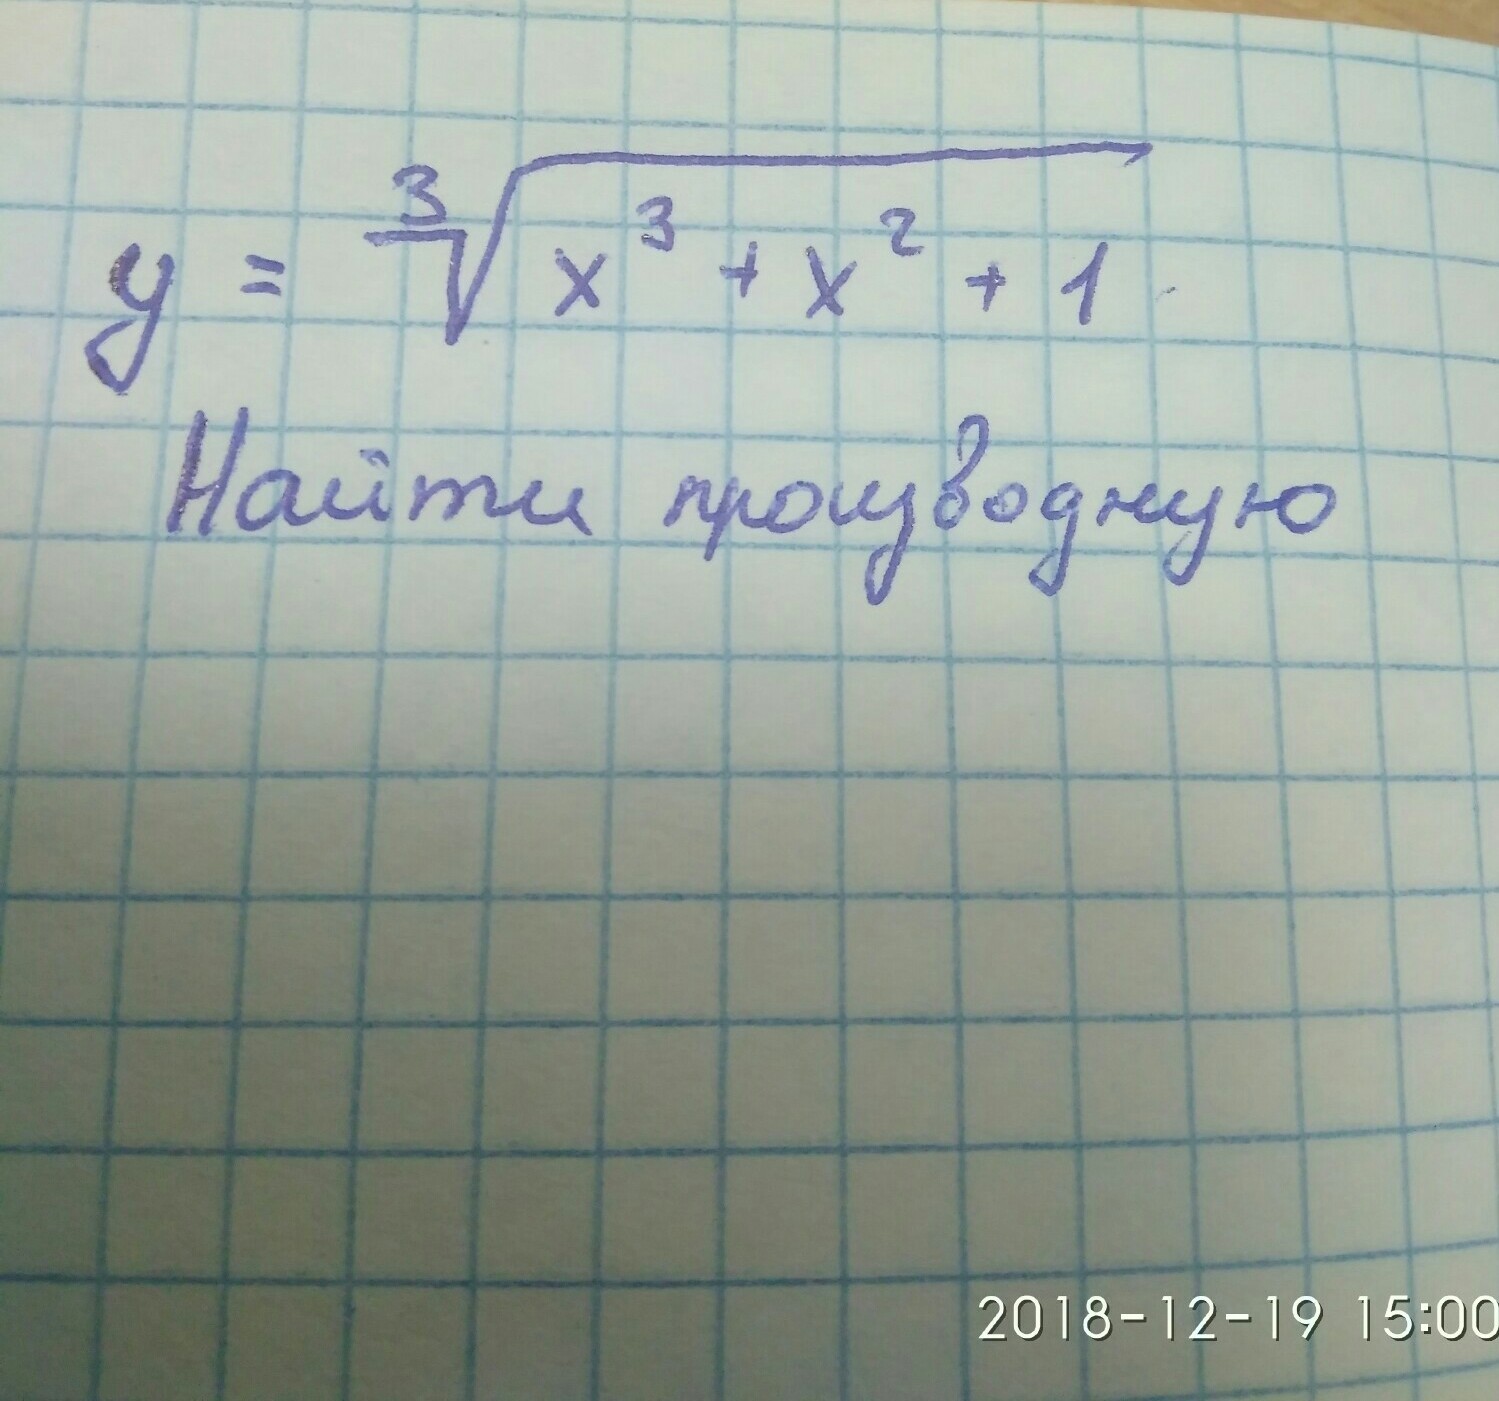 y = ∛(x³ + x² + 1)
Найти производную
2018-12-19 15:00